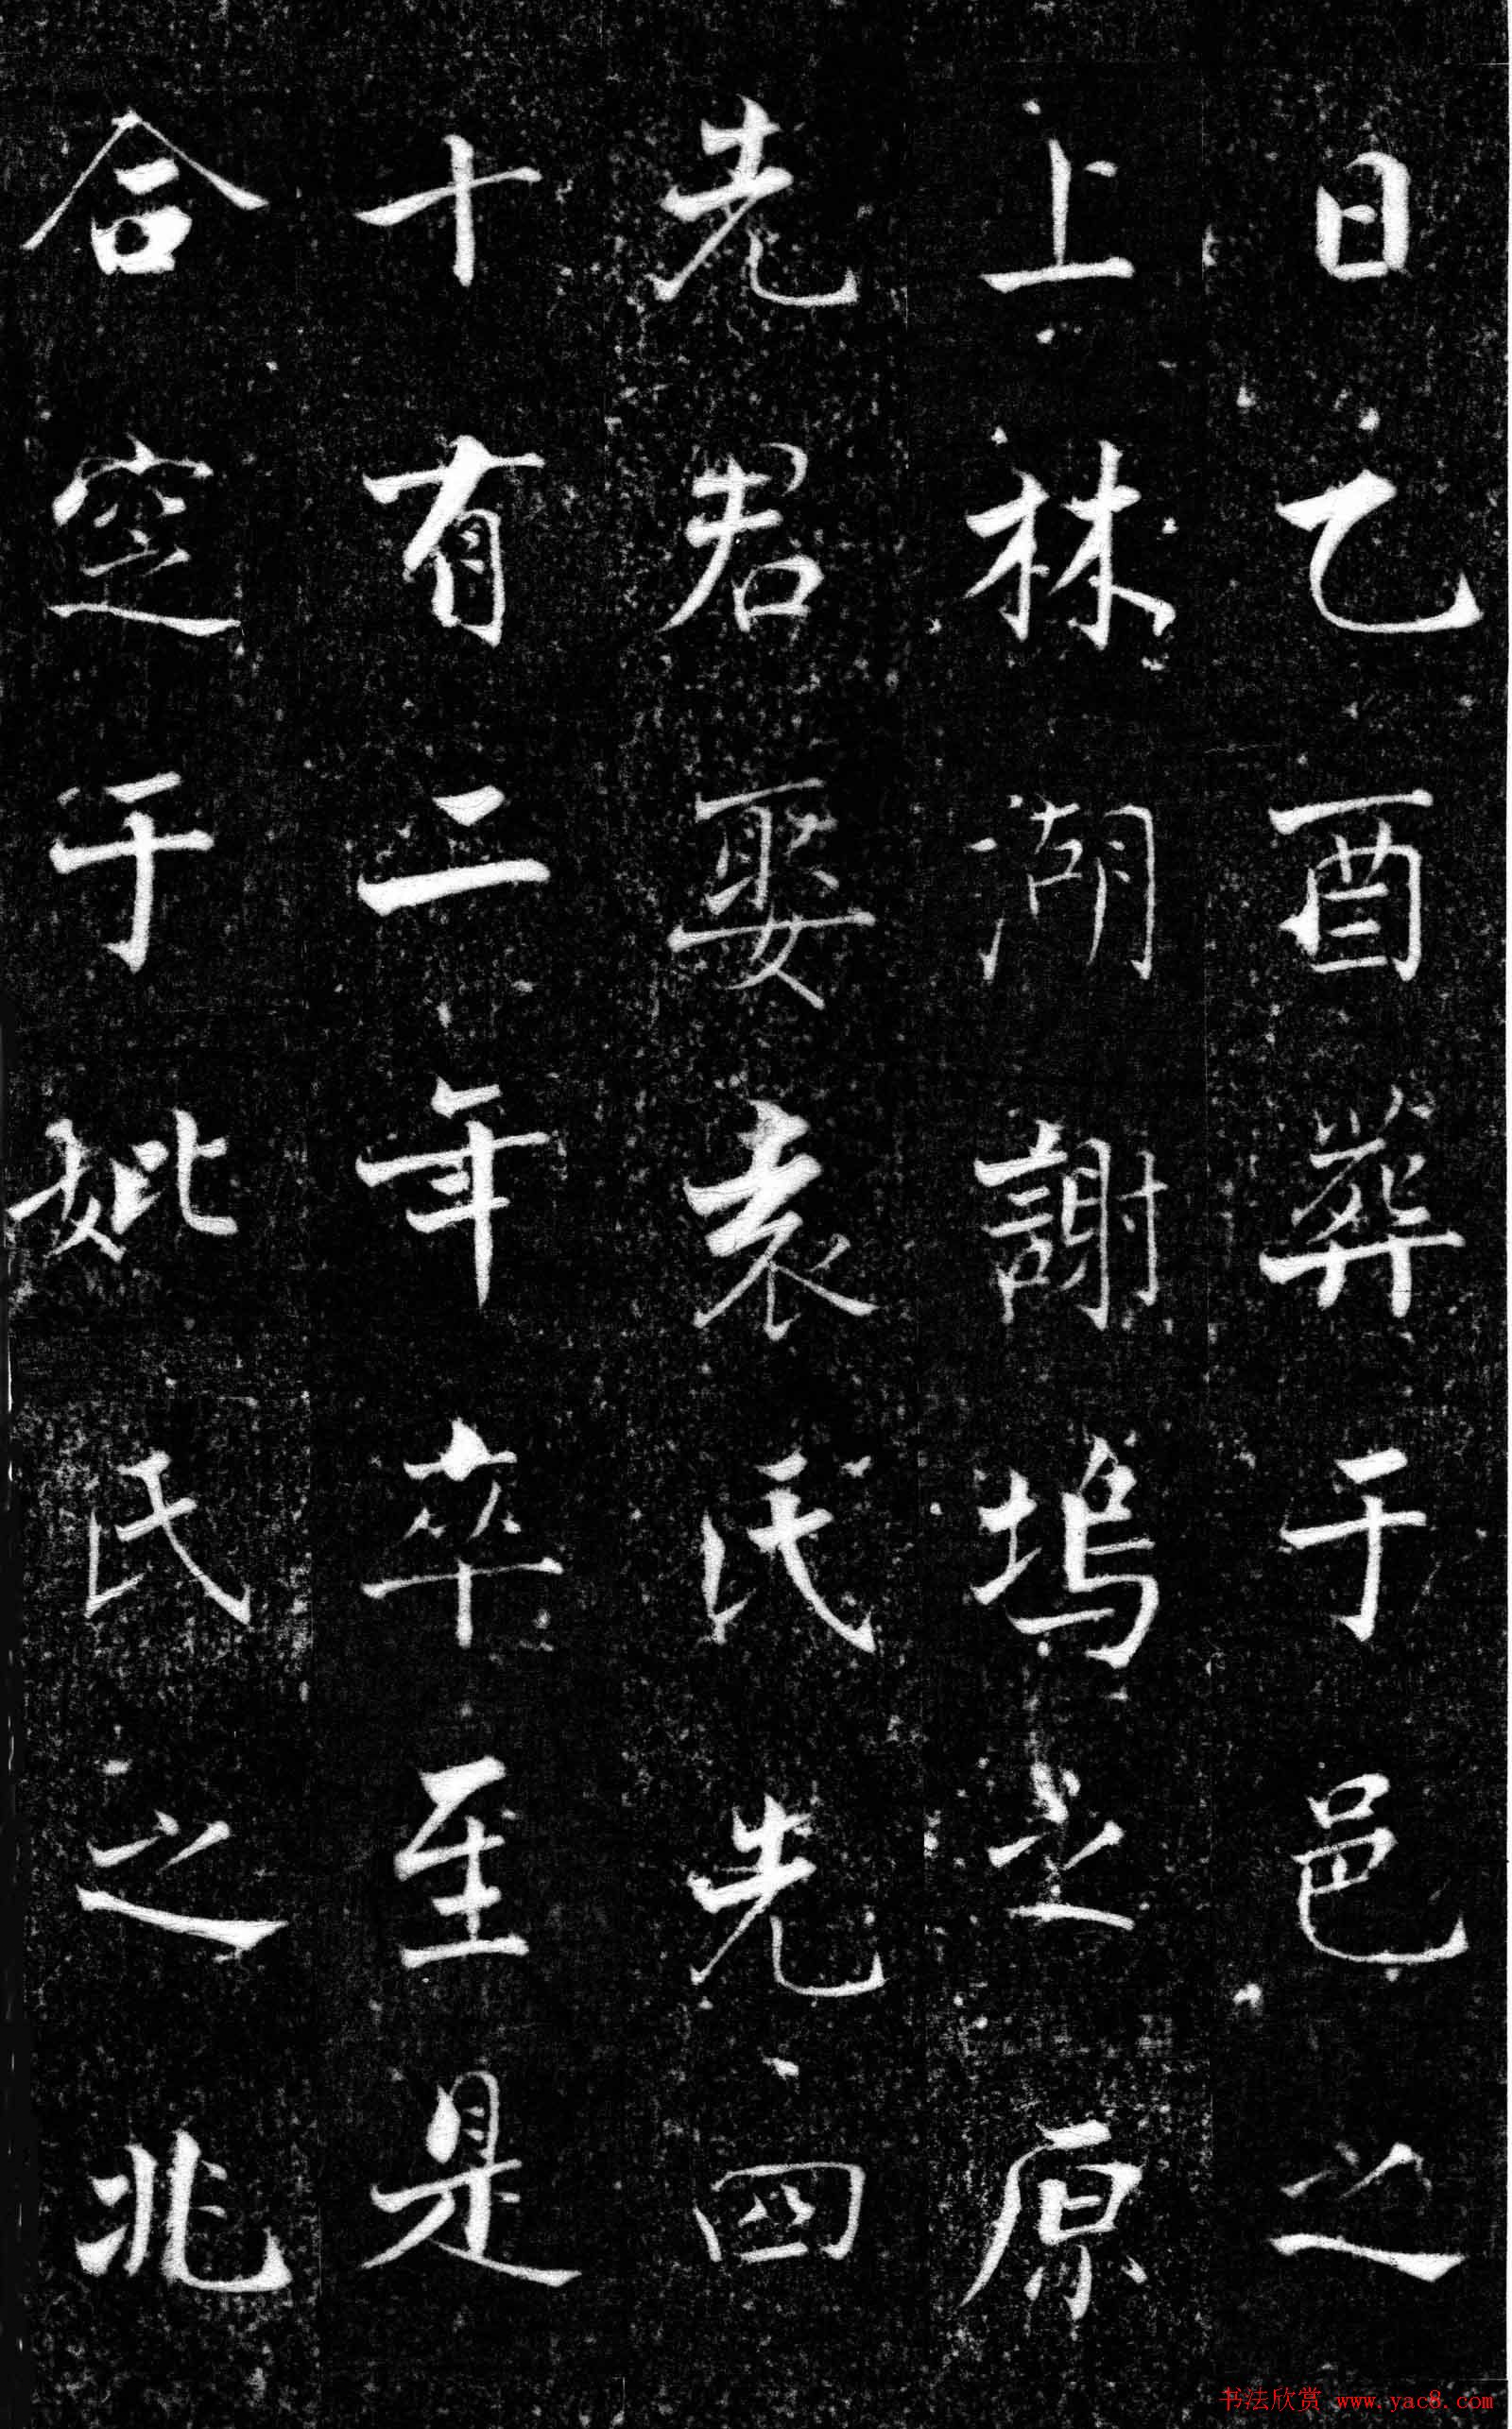 日乙酉葬于邑之
上林湖謝塢之原
先君娶袁氏先四
十有二年卒至是
合窆于妣氏之兆
书法欣赏 www.yac8.com